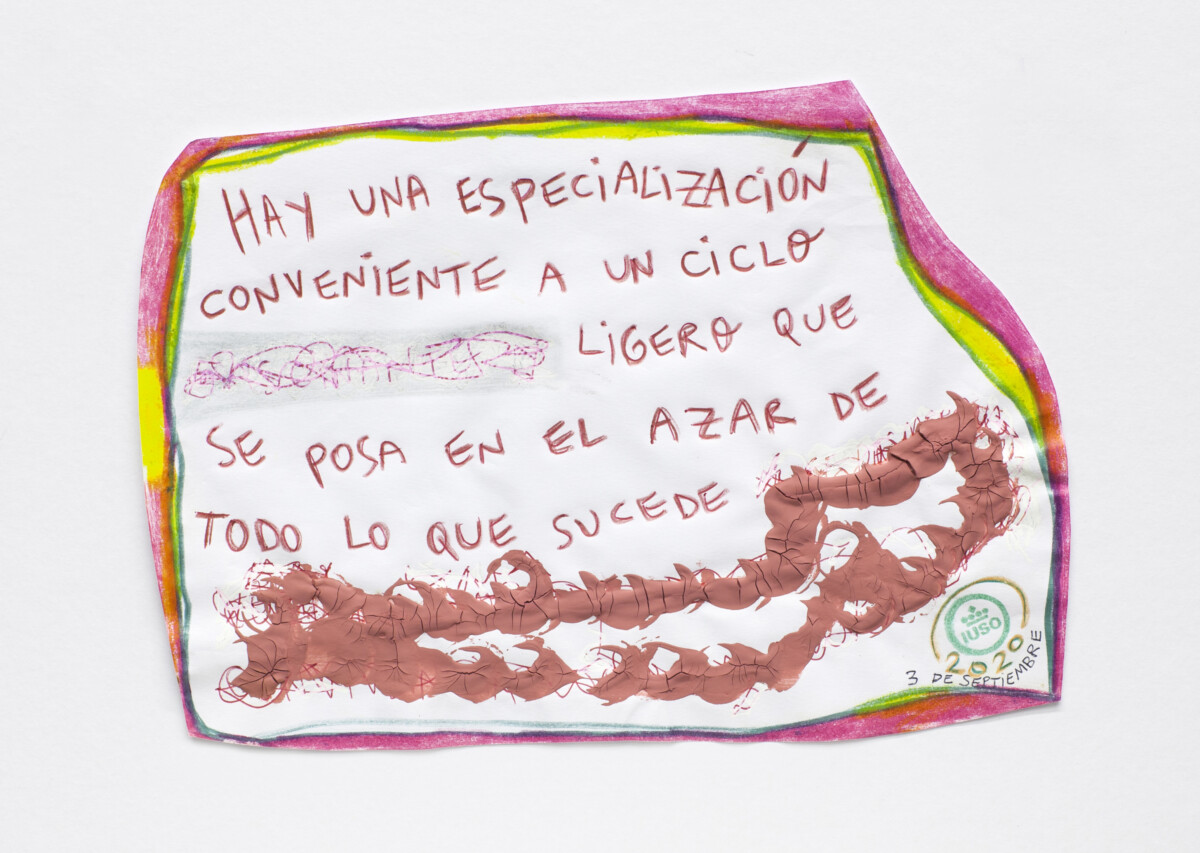 HAY UNA ESPECIALIZACIÓN
CONVENIENTE A UN CICLO
LIGERO QUE
SE POSA EN EL AZAR DE
TODO LO QUE SUCEDE
IUSO
2020
3 DE SEPTIEMBRE